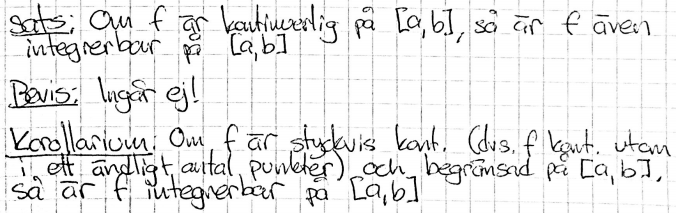 Sats: Om f är kontinuerlig på [a,b], så är f även
integrerbar på [a,b]
Bevis: Ingår ej!
Korollarium: Om f är styckvis kont. (dvs. f kont. utom
i ett ändligt antal punkter) och begränsad på [a,b],
så är f integrerbar på [a,b]